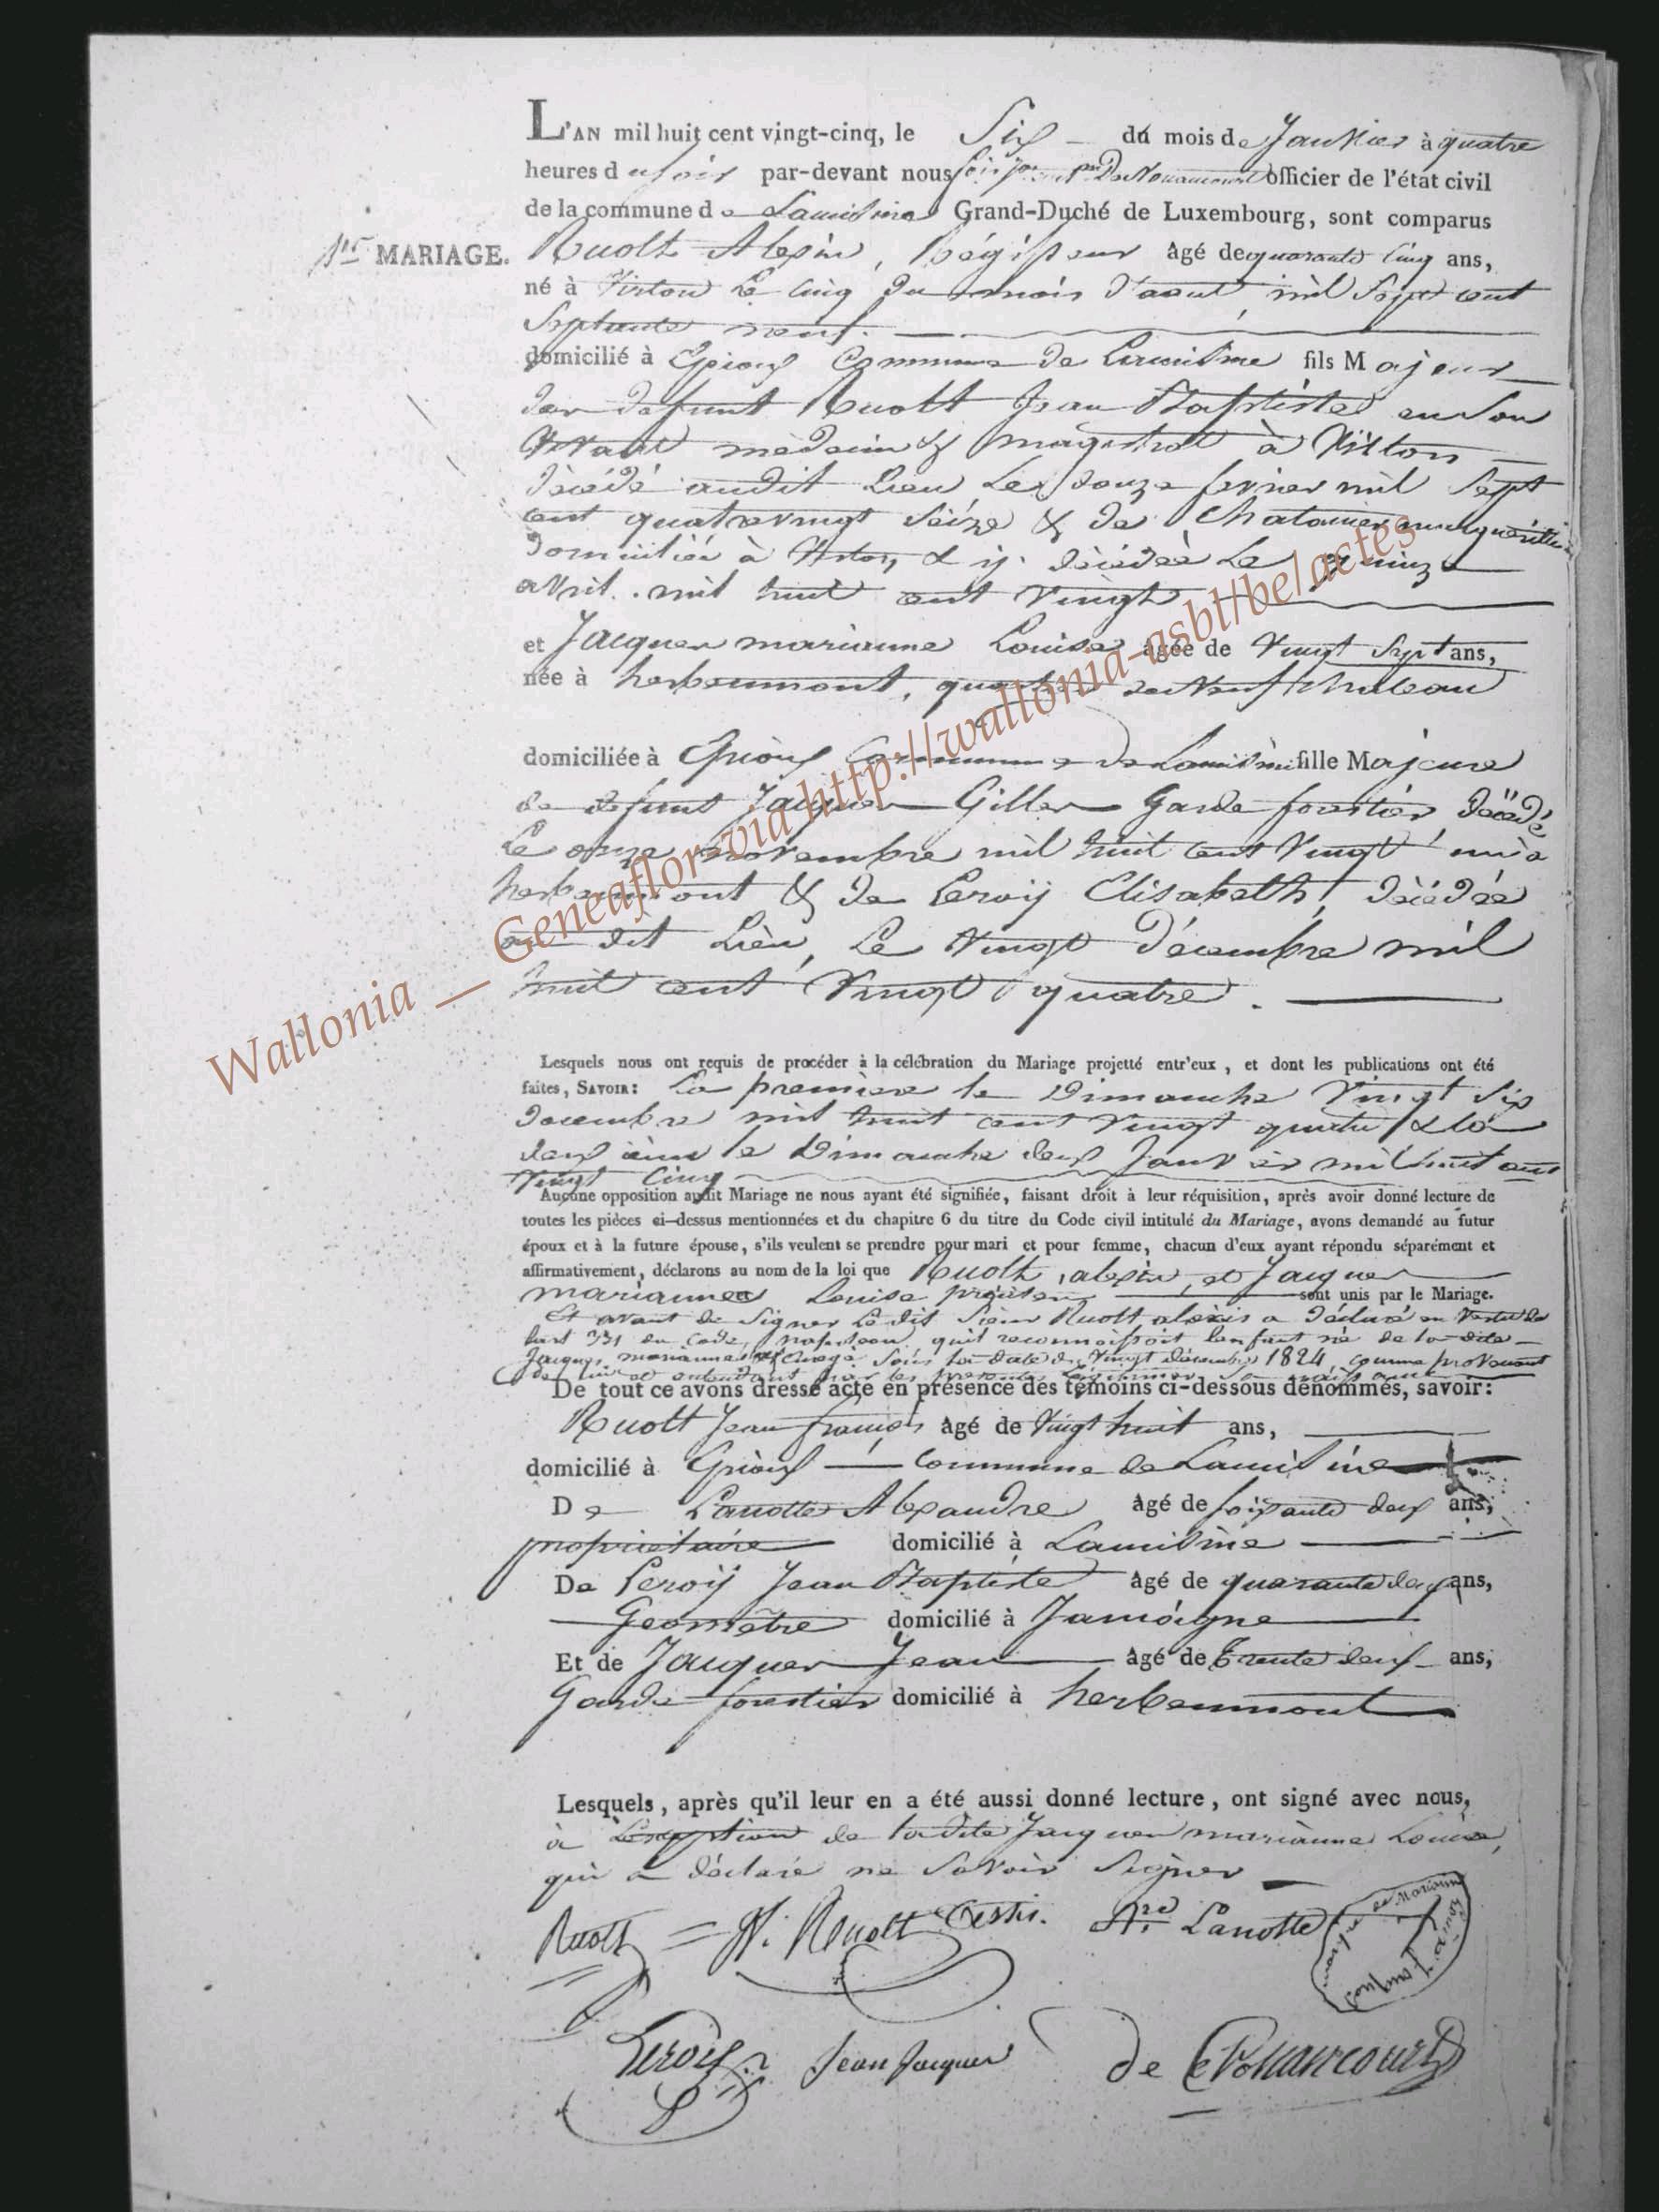 L'AN mil huit cent vingt-cinq, le Six du mois de Janvier à quatre
heures du soir par-devant nous De Nouancourt officier de l'état civil
de la commune de Lacuisine Grand-Duché de Luxembourg, sont comparus
1er MARIAGE.
Ruolt Alexis, Régisseur âgé de quarante cinq ans,
né à Virton Le cinq du mois d'aout mil Sept cent
Septante neuf.
domicilié à Epioux Commune de Lacuisine fils Majeur
de defunt Ruolt Jean Baptiste en Son
Vivant médecin & magistrat à Virton
décédé audit Lieu Le douze fevrier mil Sept
cent quatrevingt Seize & de
domiciliée à Virton & y décédée Le quinze
avril mil huit cent Vingt
et Jacques marianne Louise agée de Vingt Sept ans,
née à herbeumont, quartier de Neufchateau
domiciliée à Epioux Commune de Lacuisine fille Majeure
de defunt Jacques Gilles Garde forestier décédé
Le onze novembre mil huit cent Vingt un à
herbeumont & de Leroy Elisabeth décédée
au dit Lieu, Le Vingt Décembre mil
huit cent Vingt quatre.
Lesquels nous ont requis de procéder à la célébration du Mariage projetté entr'eux, et dont les publications ont été
faites, SAVOIR: La premiere le Dimanche Vingt Six
Decembre mil huit cent Vingt quatre & la
deuxieme le Dimanche deux Janvier mil huit cent
Vingt Cinq
Aucune opposition audit Mariage ne nous ayant été signifiée, faisant droit à leur réquisition, après avoir donné lecture de
toutes les pièces ci-dessus mentionnées et du chapitre 6 du titre du Code civil intitulé du Mariage, avons demandé au futur
époux et à la future épouse, s'ils veulent se prendre pour mari et pour femme, chacun d'eux ayant répondu séparément et
affirmativement, déclarons au nom de la loi que Ruolt, alexis, et Jacques
marianne Louise sont unis par le Mariage.
Et avant de Signer Le dit Sieur Ruolt alexis a déclaré en Vertu de
lart 331 du Code, napoleon, qu'il reconnoissoit lenfant né de la dite
Jacques marianne Sous la date du Vingt décembre 1824, comme provenant
de lui et par les presentes
De tout ce avons dressé acte en présence des témoins ci-dessous dénommés, savoir:
Ruolt Jean françois âgé de Vingt huit ans,
domicilié à Epioux Commune de Lacuisine
De Lanotte Alexandre âgé de soixante deux ans,
propriétaire domicilié à Lacuisine
De Leroy Jean Baptiste âgé de quarante deux ans,
Geomètre domicilié à Jamoigne
Et de Jacques Jean âgé de trente deux ans,
Garde forestier domicilié à herbeumont
Lesquels, après qu'il leur en a été aussi donné lecture, ont signé avec nous,
à L'exception de ladite Jacques marianne Louise,
qui a déclaré ne Savoir Signer
Ruolt Ruolt testis. Lanotte
marque de Marianne Louise Jacques
Leroy Jean Jacques de Nouancourt
Wallonia __ Geneaflor via http://wallonia-asbl/be/actes